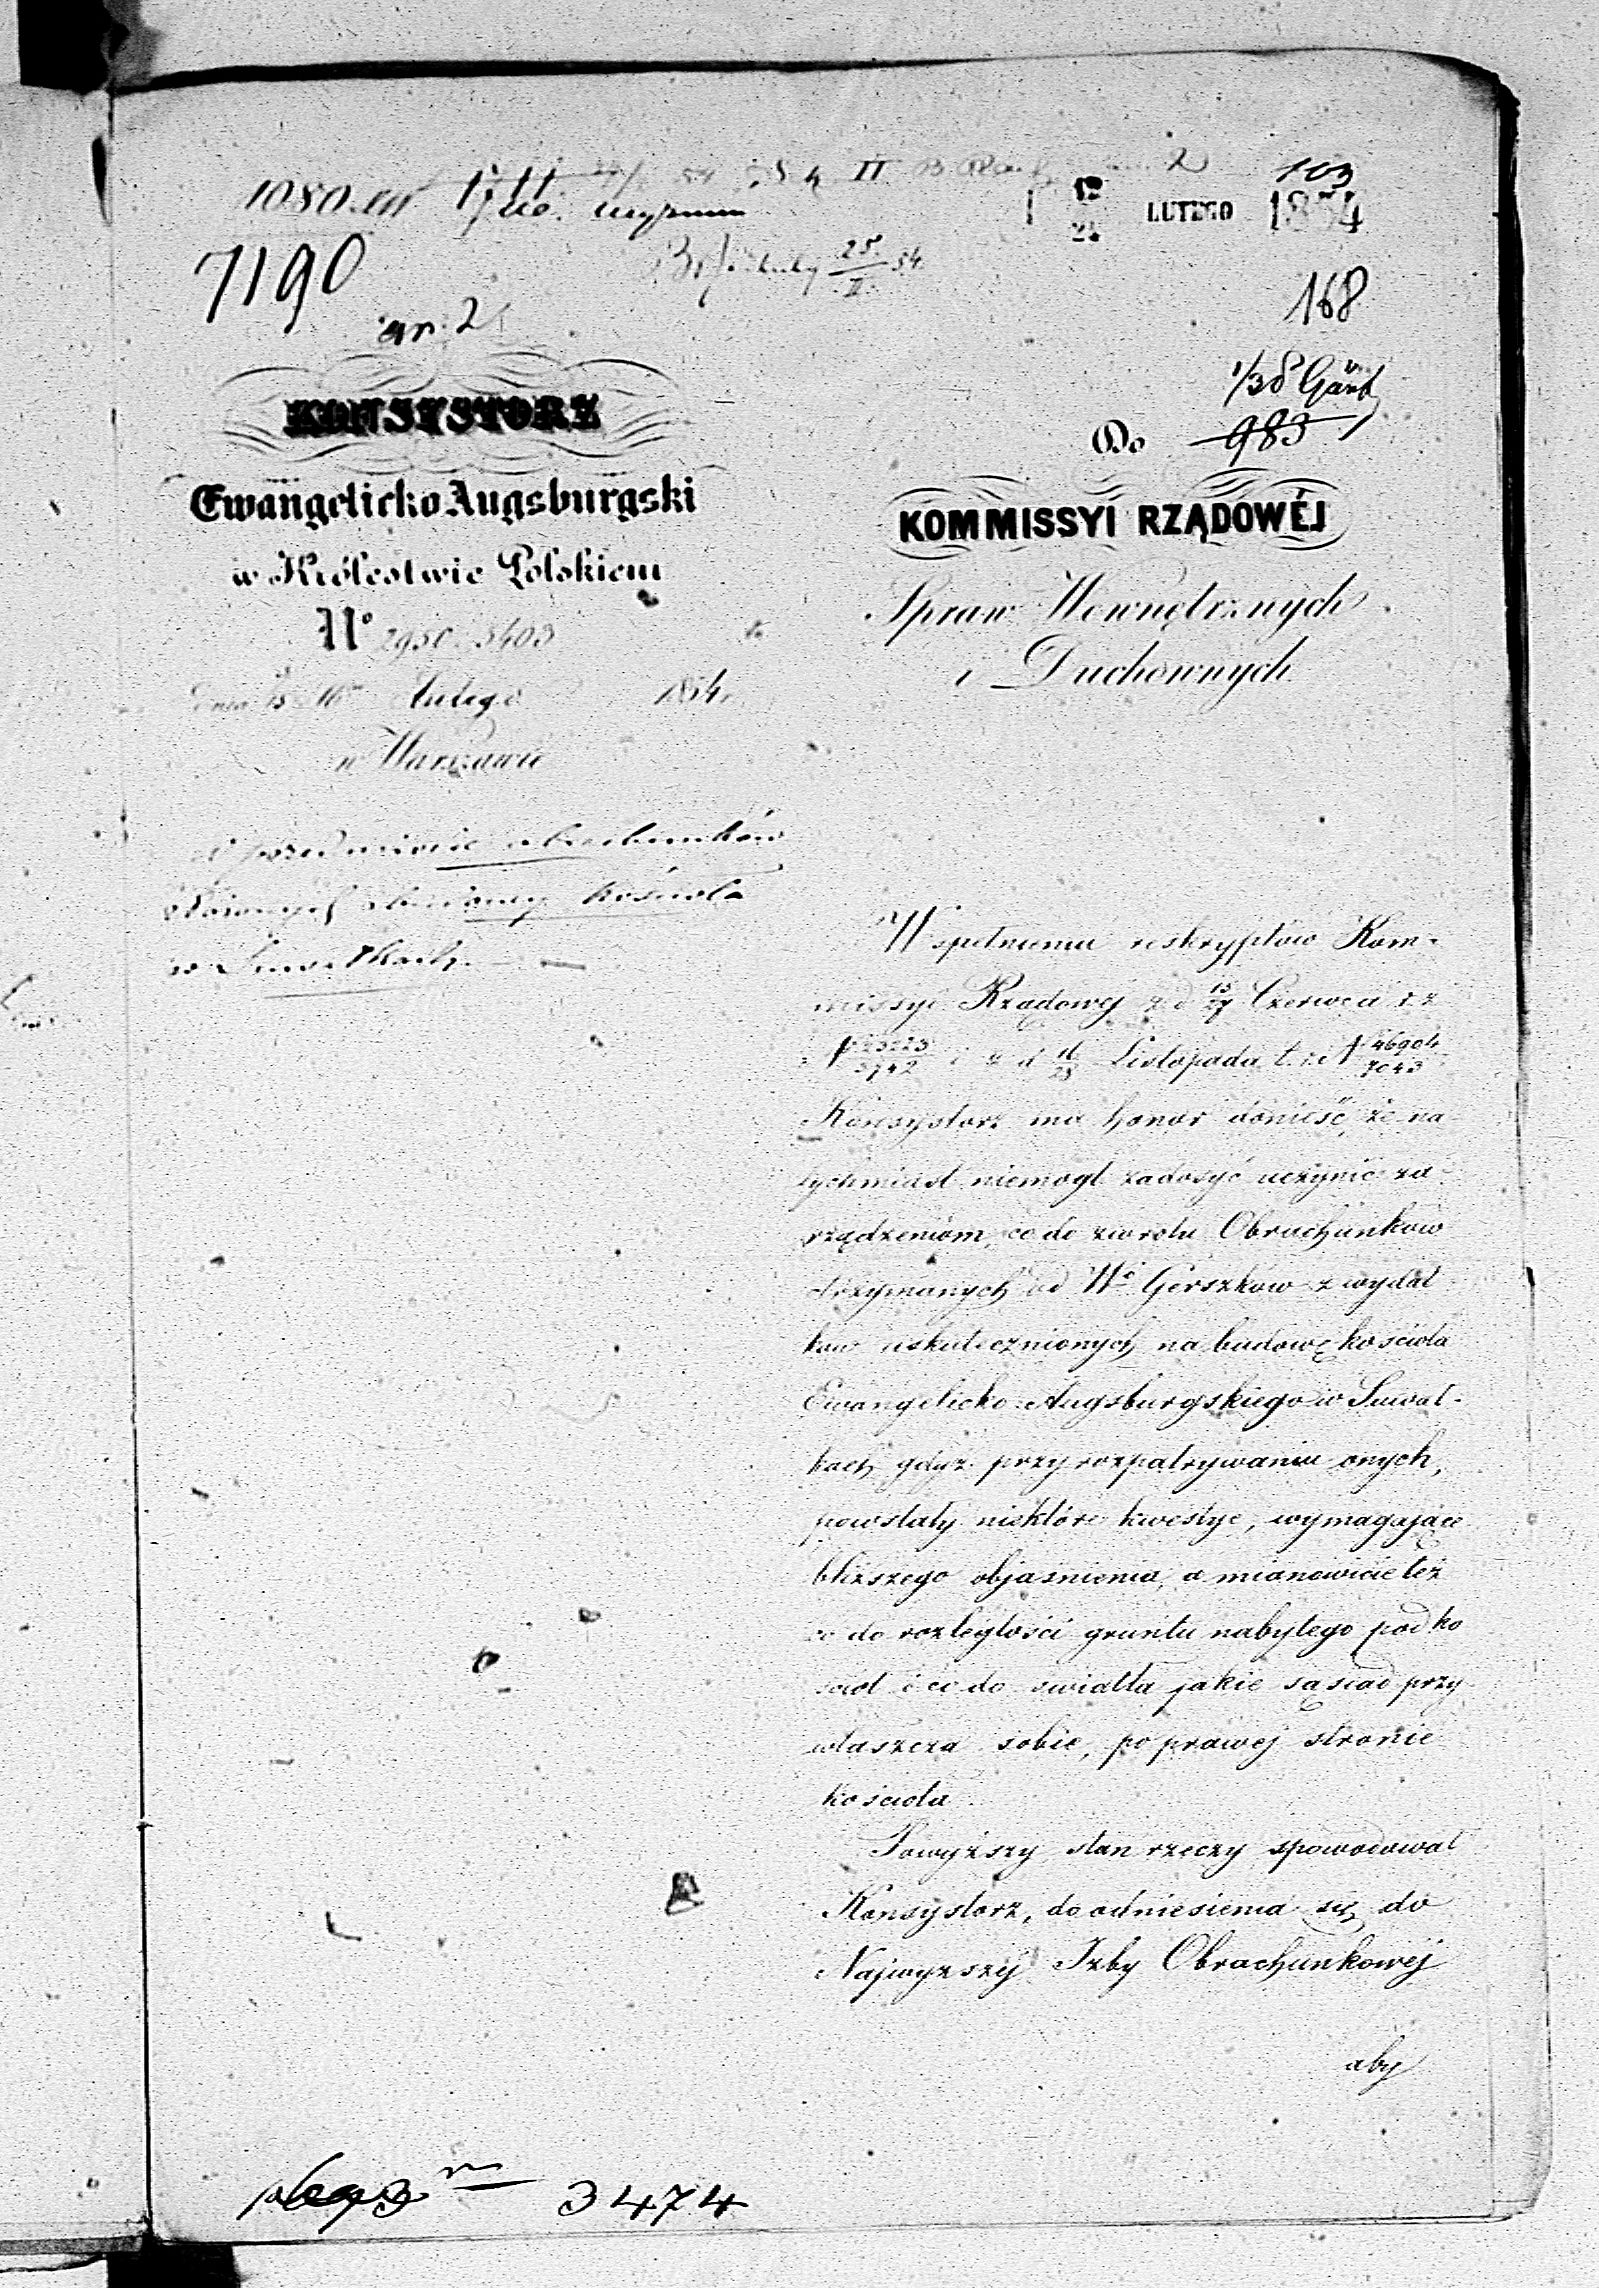 1080
103
12
24
LUTEGO 1854
7190
25
II
54
168
138
Do 983
KONSYSTORZ
Ewangelicko Augsburgski
w Królestwie Polskiem
No 2950. 5403
Dnia Lutego 1854
w Warszawie
KOMMISSYI RZĄDOWÉJ
Spraw Wewnętrznych
i Duchownych
W przedmiocie obrachunków
budowy kościoła
w Suwałkach.
W spełnieniu reskryptów Kom-
missyi Rządowej z d 15/27 Czerwca r. z
N 23223/3742 i z d 16/28 Listopada t. r. N 46904/7043
Konsystorz ma honor donieść, że na-
tychmiast niemogł zadosyć uczynić za-
rządzeniom, co do zwrotu Obrachunków
otrzymanych od Wo Gerszkow z wydat
kow uskutecznionych na budowę kościoła
Ewangelicko-Augsburgskiego w Suwał-
kach gdyż przy rozpatrywaniu onych,
powstały niektóre kwestye, wymagające
bliższego objaśnienia, a mianowicie też
co do rozległości gruntu nabytego pod ko
sciol i co do swiatła jakie sąsiad przy
właszcza sobie, po prawej stronie
kościoła
Powyższy stan rzeczy spowodował
Konsystorz, do odniesienia się do
Najwyższej Izby Obrachunkowéj
aby
3474